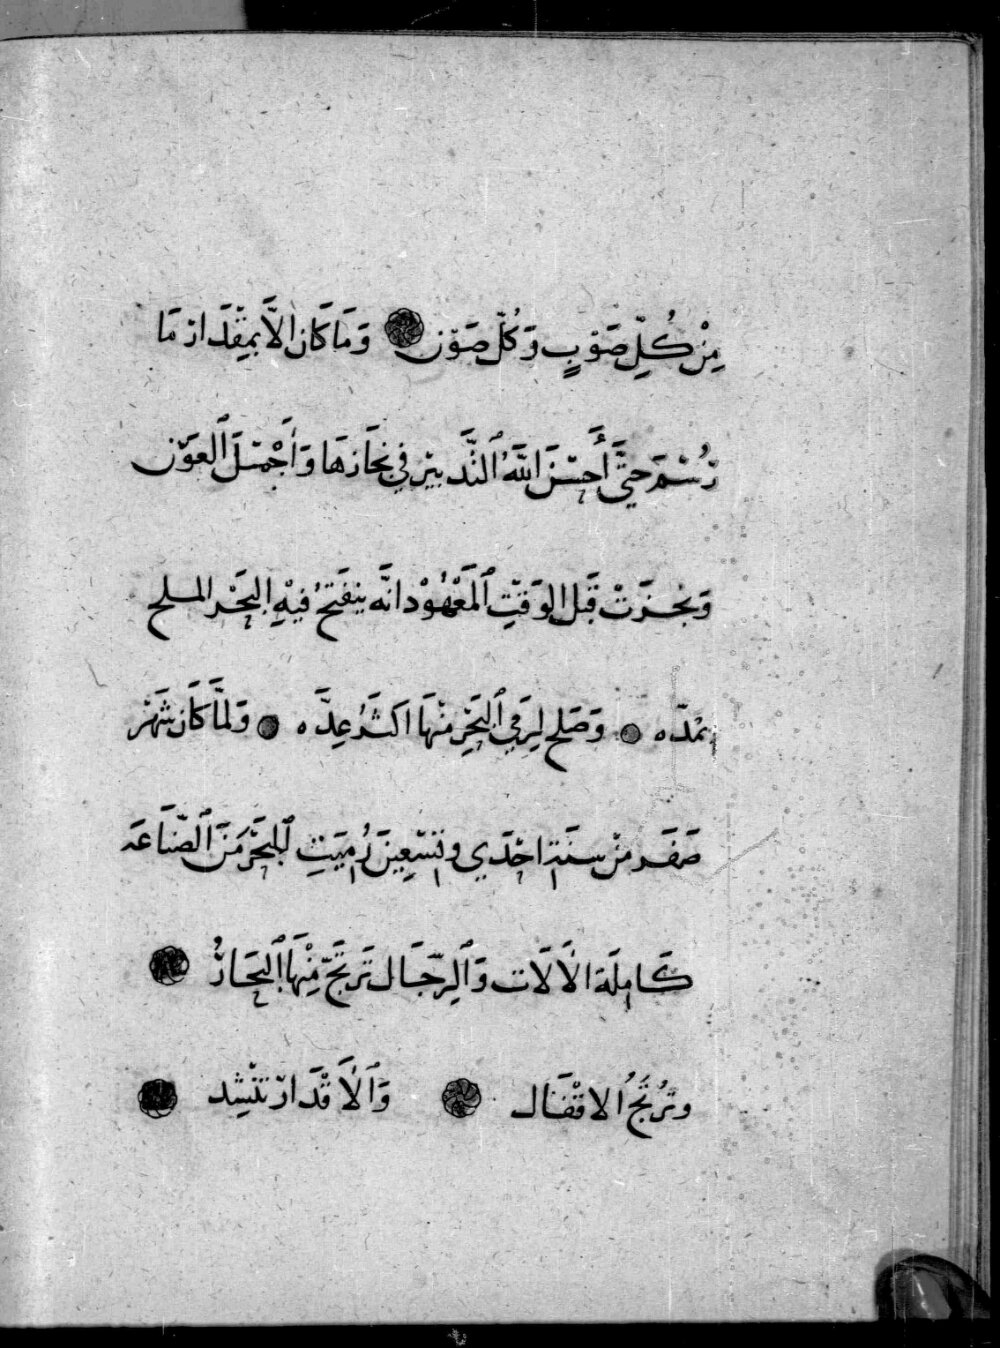 مِنْ كُلِّ صَوْبٍ وَكُلِّ صَوْن وَمَا كَانَ الَّا بِمِقْدَارِ مَا
رُسْمَ حَتَّى أَحْسَنَ اللَّهُ ٱلتَّدْبِيْرَ فِي نِجَازِهَا وَأَجْمَلَ ٱلْعَوْن
وَنجزَتْ قَبْلَ الوَقْتِ ٱلْمَعْهُوْدِ انَّه يَنفَتحُ فِيْهِ البَحْر الملح
بمُدّه وَصَلح لِرَمي ٱلبَحْرِ مِنْهَا اكثَرُ عِدَّه وَلمَّا كَان شَهْر
صَفَر مِنْ سنَة احْدَي وتسْعِينَ رُمِيَتِ لِلبَحْرِ مِنَ ٱلصِّنَاعَه
كَامِلَة الْالَات وَٱلرِّجَال تَرتَجّ مِنْهَا ٱلبحَارُ
وتُرْتجُ الاقْفَال وَٱلْأَقْدَار تنْشِد